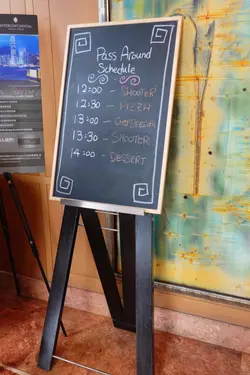 INTERCONTINENTAL
Pass Around
Schedule
12:00 - SHOOTER
12:30 - PIZZA
13:00 - CHEESEBOARD
13:30 - SHOOTER
14:00 - DESSERT